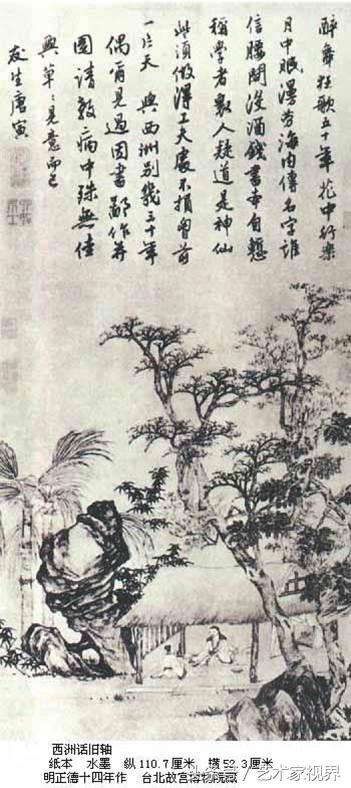 醉舞狂歌五十年花中行樂
月中眠漫勞海內傳名字誰
信腰間沒酒錢書本自慙
稱學者衆人疑道是神仙
些須做得工夫處不損胸前
一片天 與西洲別幾三十年
偶爾見過因書鄙作并
圖請教病中殊無佳
興草〻見意而已
友生唐寅
西洲话旧轴
纸本 水墨 纵110.7厘米 横52.3厘米
明正德十四年作 台北故宫博物院藏
头条号/艺术家视界